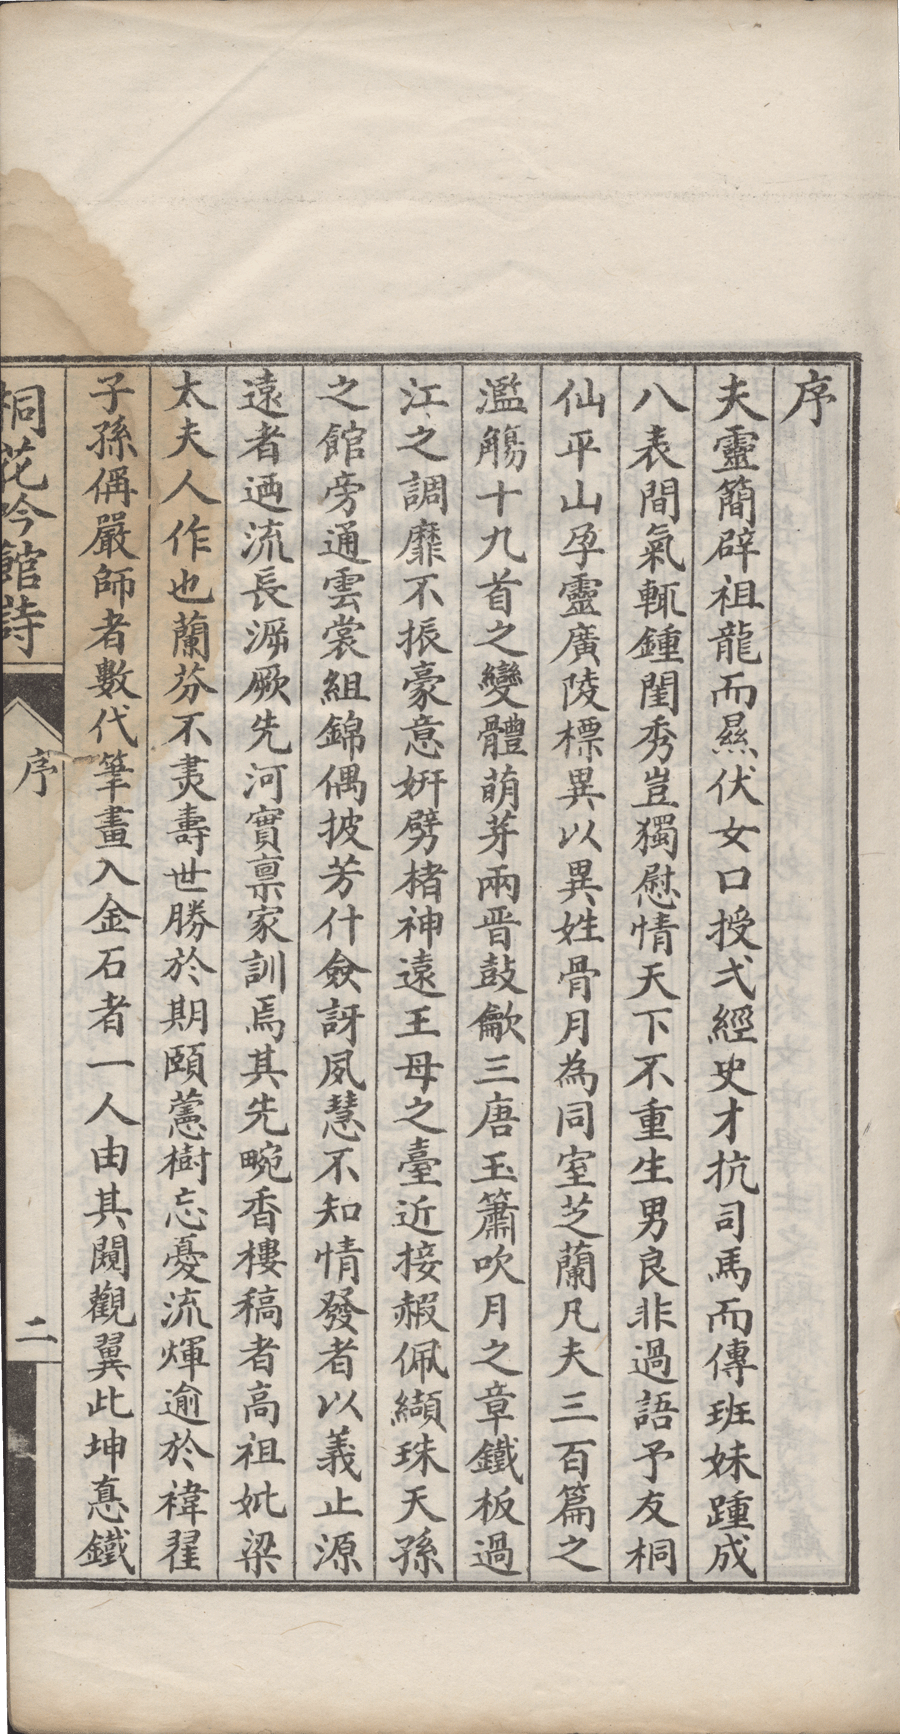 序
夫靈簡辟祖龍而㬎伏女口授弌經史才抗司馬而傳班妹踵成
八表間氣輒鍾閨秀豈獨慰情天下不重生男良非過語予友桐
仙平山孕靈廣陵標異以異姓骨月為同室芝蘭凡夫三百篇之
濫觴十九首之變體萌芽兩晋鼓龡三唐玉簫吹月之章鐵板過
江之調靡不振豪意姸劈楮神遠王母之臺近接赮佩纈珠天孫
之館旁通雲裳組錦偶披芳什僉訝夙慧不知情發者以義止源
遠者迺流長㴑厥先河實禀家訓焉其先畹香樓稿者高祖妣梁
太夫人作也蘭芬不㚇壽世勝於期頤藼樹忘憂流煇逾於褘翟
子孫偁嚴師者數代筆畫入金石者一人由其閿觀翼此坤悳鐵
桐花吟館詩
序
二